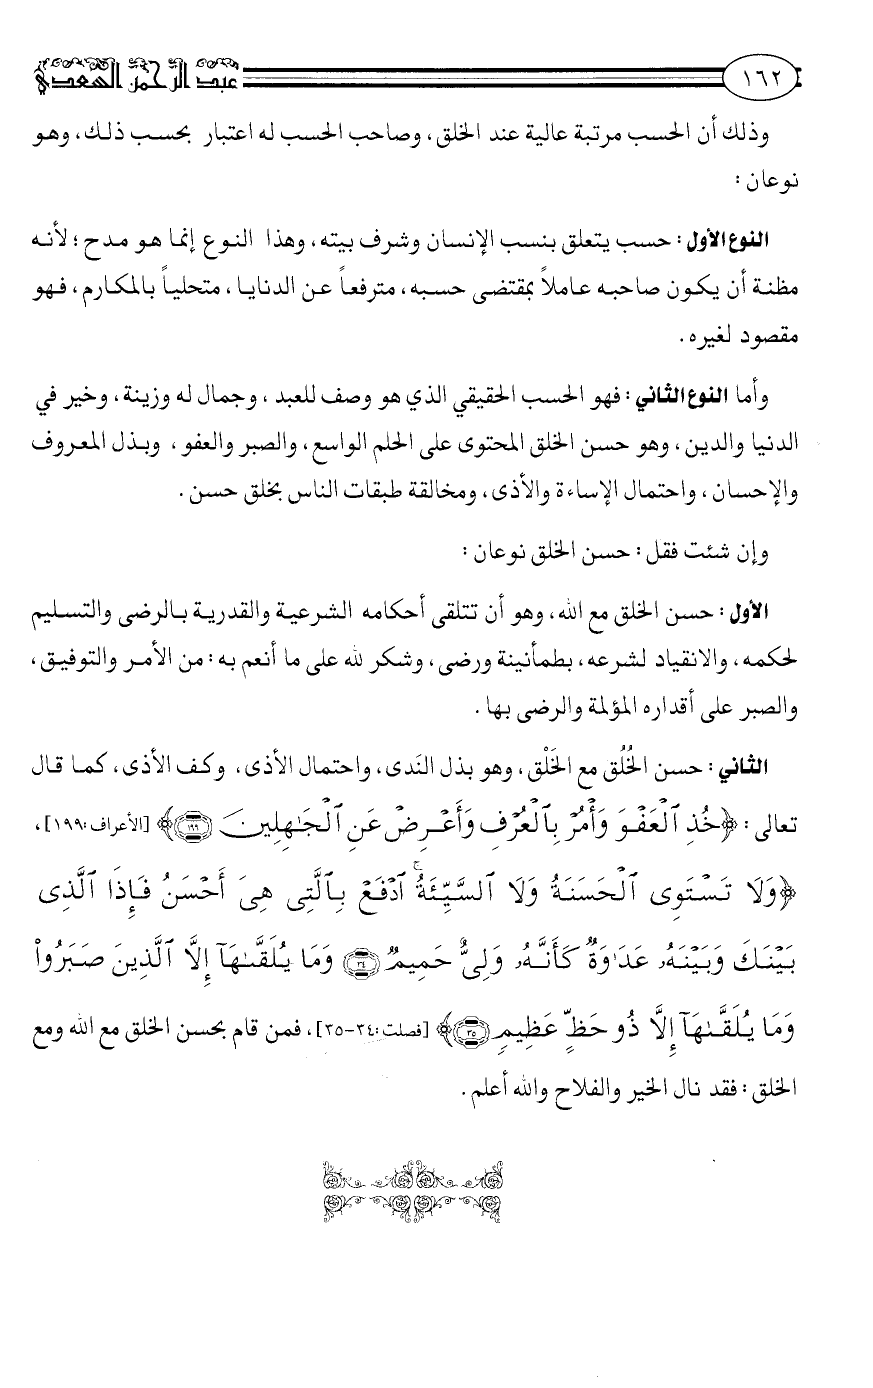 ١٦٢ عبد الرحمن السعدي
وذلك أن الحسب مرتبة عالية عند الخلق، وصاحب الحسب له اعتبار بحسب ذلك، وهو
نوعان:
النوع الأول: حسب يتعلق بنسب الإنسان وشرف بيته، وهذا النوع إنما هو مدح؛ لأنه
مظنة أن يكون صاحبه عاملاً بمقتضى حسبه، مترفعاً عن الدنايا، متحلياً بالمكارم، فهو
مقصود لغيره.
وأما النوع الثاني: فهو الحسب الحقيقي الذي هو وصف للعبد، وجمال له وزينة، وخير في
الدنيا والدين، وهو حسن الخلق المحتوى على الحلم الواسع، والصبر والعفو، وبذل المعروف
والإحسان، واحتمال الإساءة والأذى، ومخالقة طبقات الناس بخلق حسن.
وإن شئت فقل: حسن الخلق نوعان:
الأول: حسن الخلق مع الله، وهو أن تتلقى أحكامه الشرعية والقدرية بالرضى والتسليم
لحكمه، والانقياد لشرعه، بطمأنينة ورضى، وشكر لله على ما أنعم به: من الأمر والتوفيق،
والصبر على أقداره المؤلمة والرضى بها.
الثاني: حسن الخُلُق مع الخَلْق، وهو بذل النَدى، واحتمال الأذى، وكف الأذى، كما قال
تعالى: ﴿خُذِ ٱلۡعَفۡوَ وَأۡمُرۡ بِٱلۡعُرۡفِ وَأَعۡرِضۡ عَنِ ٱلۡجَٰهِلِينَ ١٩٩﴾ [الأعراف:١٩٩]،
﴿وَلَا تَسۡتَوِى ٱلۡحَسَنَةُ وَلَا ٱلسَّيِّئَةُۚ ٱدۡفَعۡ بِٱلَّتِى هِىَ أَحۡسَنُ فَإِذَا ٱلَّذِى
بَيۡنَكَ وَبَيۡنَهُۥ عَدَٰوَةٌ كَأَنَّهُۥ وَلِىٌّ حَمِيمٌ ٣٤ وَمَا يُلَقَّىٰهَآ إِلَّا ٱلَّذِينَ صَبَرُواْ
وَمَا يُلَقَّىٰهَآ إِلَّا ذُو حَظٍّ عَظِيمٍ ٣٥﴾ [فصلت:٣٤-٣٥]، فمن قام بحسن الخلق مع الله ومع
الخلق: فقد نال الخير والفلاح والله أعلم.